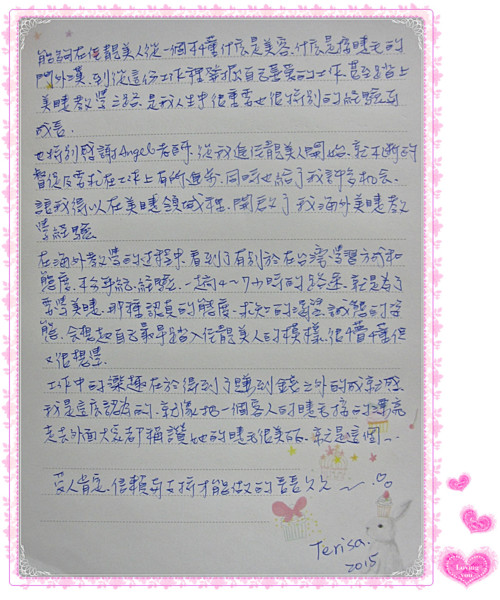 能夠在佳靚美人從一個不懂什麼是美容.什麼是接睫毛的
門外漢.到從這份工作裡發掘自己喜愛的工作.甚至踏上
美睫教學之路.是我人生中很重要也很特別的經驗與
成長.
也特別感謝Angel老師.從我進佳靚美人開始.就不斷的
督促否需扎在工作上有所進步.同時也給了我許多机会.
讓我得以在美睫領域裡.開啟了我海外美睫教
學經驗
在海外教學的过程中看到了有別於在台湾學習方式和
態度.
一趟4~7小時的路途.就是為了
要學美睫.那種認真的態度.求知的渴望.
態.会想起自己最早踏入佳靚美人的模樣.很懵懂但
又很想學.
工作中的樂趣在於得到了賺到錢之外的成就感
我是這麼認為的.就像把一個客人的睫毛接的漂亮
走去外面大家都稱讚她的睫毛很美麗.就是這個~.
受人肯定.信賴與支持才能做的長長久久~
Terisa.
2015
Loving
you